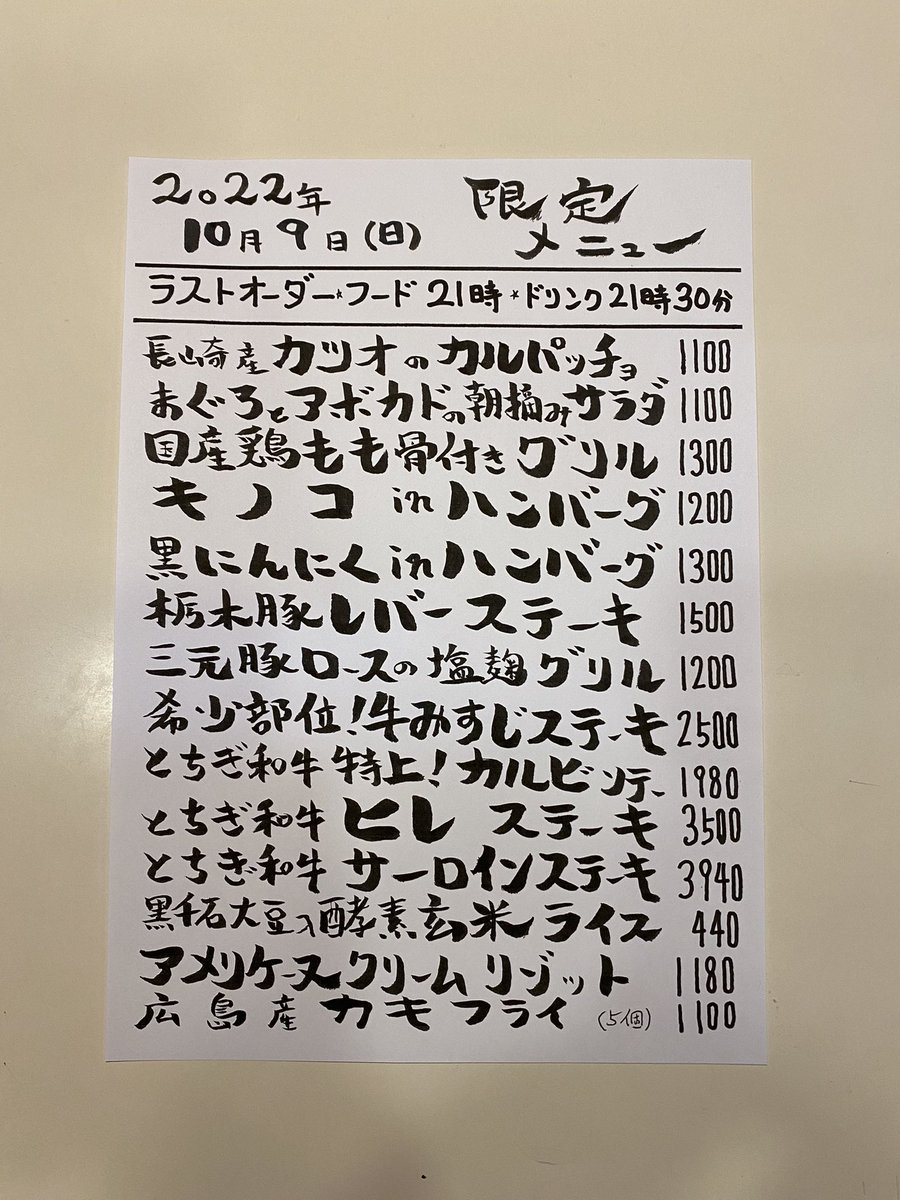 2022年
10月9日(日)
限定
メニュー
ラストオーダー★フード21時★ドリンク21時30分
長崎産カツオのカルパッチョ 1100
まぐろとアボカドの朝摘みサラダ 1100
国産鶏もも骨付きグリル 1300
キノコinハンバーグ 1200
黒にんにくinハンバーグ 1300
栃木豚レバーステーキ 1500
三元豚ロースの塩麹グリル 1200
希少部位!牛みすじステーキ 2500
とちぎ和牛特上!カルビソテー 1980
とちぎ和牛ヒレステーキ 3500
とちぎ和牛サーロインステーキ 3940
黒千石大豆入酵素玄米ライス 440
アメリケーヌクリームリゾット 1180
広島産カキフライ(5個) 1100